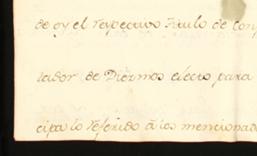 de oy el respectivo Titulo de Con
tador de Diezmos electo para
cipa lo referido à los mencionad